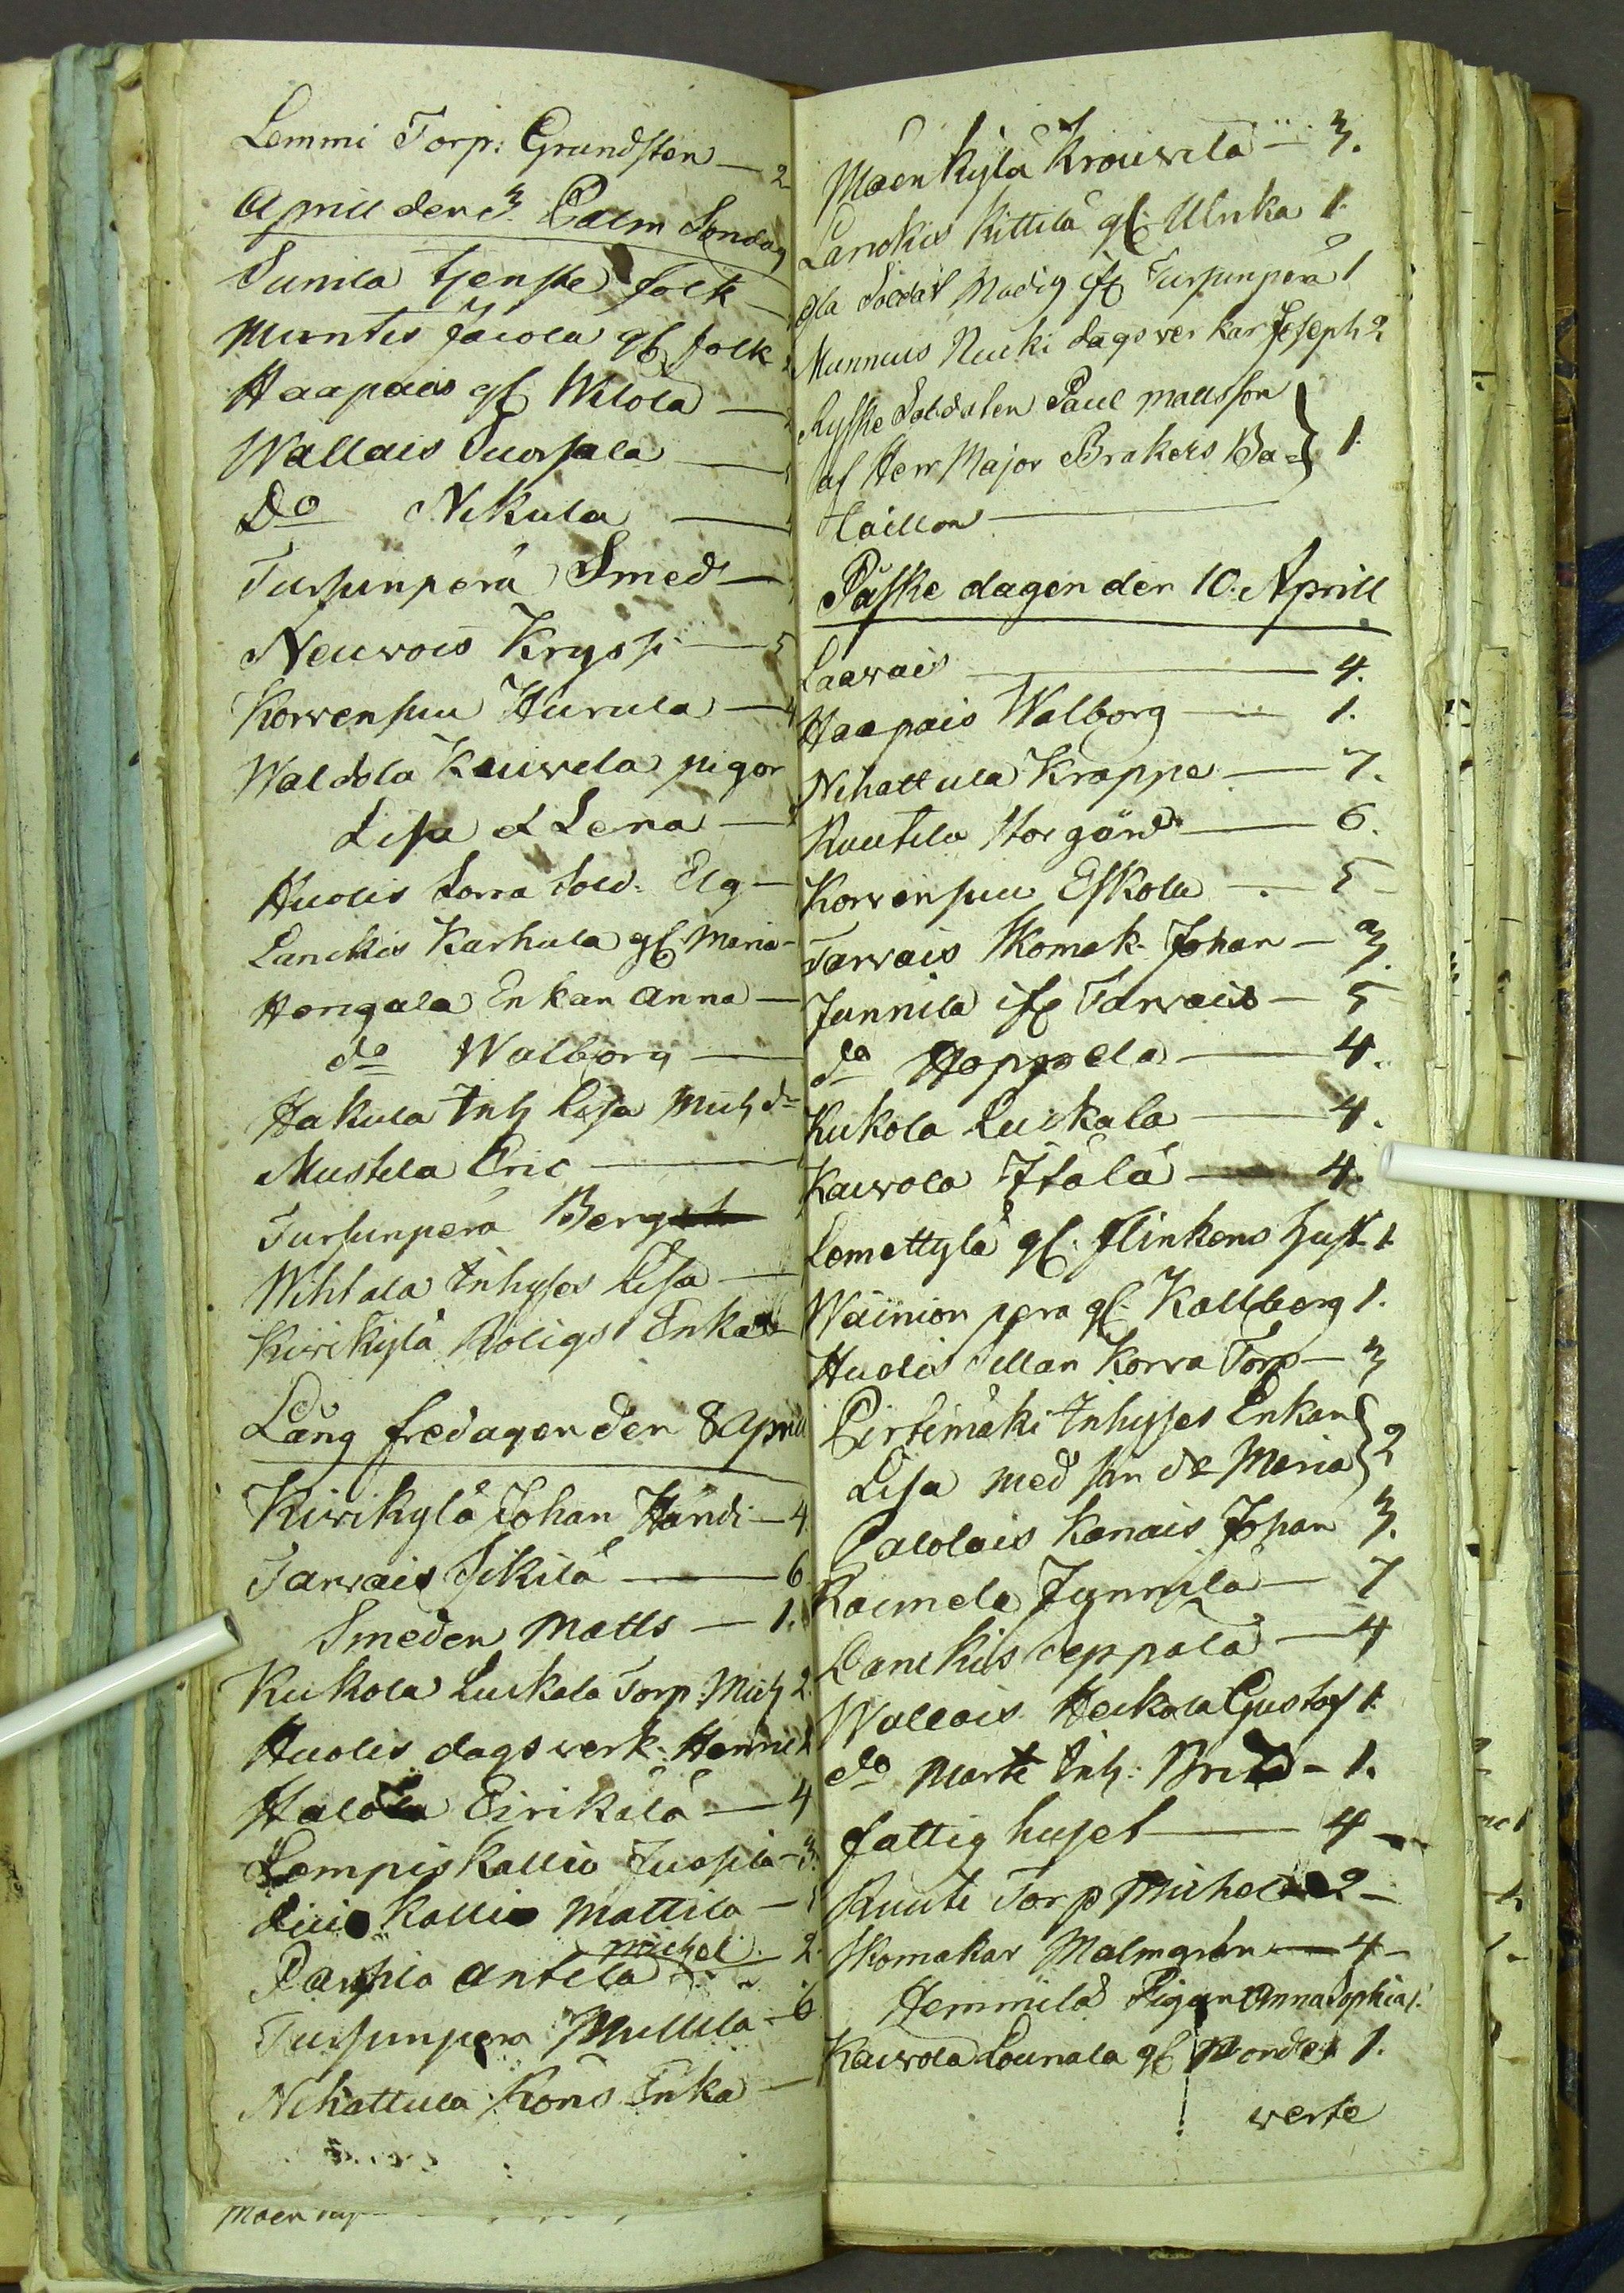 Lemmi Torp: Grundsten — 2
Aprill den 3. Palm Sondag
Sunila tjenste folk —
Muntis Jacola gl folk
Haapais gl Wilola —
Wallais Tuorsala —
Do Nikula —
Tursunperä Smed —
Neuvois Kryssi — 5
Korvensuu Hurula — 4
Waldola Kauvela pigor
Lisa & Lena —
Huolis Sorra Sold. Elg —
Lanckis Karhula gl Maria —
Hongala Enkan Anna —
do Walborg —
Hakula Inh Lisa Mich dr
Mustela Eric —
Tursunperä Berg
Wihtala Inhyses Lisa —
Kirikylä Roligs Enka
Lång fredagen den 8 April
Kirikylä Johan Händi — 4
Tarvais Sikilä — 6
Smeden Matts — 1.
Kukola Luckala Torp. Mich 2.
Huolis dagswerk. Henric
Halola Eirikilä — 4
Lempiskallio Juosila — 3.
kallio Mattila —
Michel
Parsila Antila — 2.
Tursunpera Mullila — 6
Nihattula Kons Enka —
Maen
Mäenkylä Krouvila — 3.
Lanckis Kittilä gl. Ulrika 1.
dla Soldat Modig ifr Tursunperä 1
Munnuis Nucki dagsverkar Joseph 2
Ryske Soldaten Paul Mattsson
af Herr Major Brakers Ba= } 1.
taillon —
Påske dagen den 10. Aprill
Laavais — 4.
Haapais Walborg — 1.
Nihattula Krappe — 7.
Kuutila Storgård — 6.
Korvensuu Eskola — 5 —
Tarvais Skomak. Johan — 3.
Junnila ifr Tarvais — 5
do Hoppela — 4.
Kukola Luckala — 4.
Kauvola Itälä — 4.
Lemettylä gl. Flinkens hust. 1.
Wäinion pera gl. Kallberg 1.
Huolis Sillan Korva Torp — 3
Pirtimäki Inhyses Enkan
Lisa med sin dr Maria } 2
Palolais Kanais Johan 3.
Raimela Junnila — 7
Lanckis Seppälä — 4
Wallais Heikola Gustaf 1.
do Martti Inh: Brita — 1.
Fattighuset — 4 —
Kuuti Torp Michel 2 —
Skomakar Malmgrén — 4 —
Hemmilä Pigan Anna Sophia 1.
Kauvola Lounala gl 1.
verte